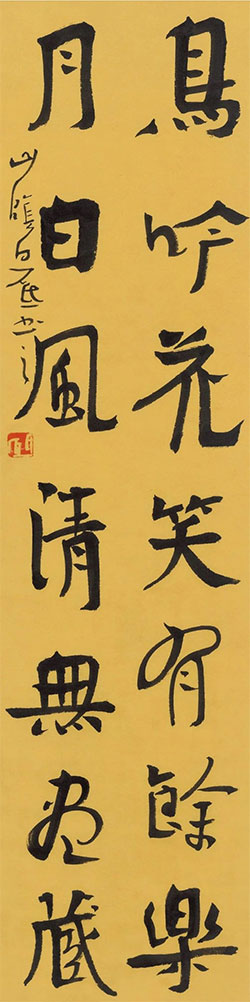 鳥吟花笑有餘樂
月白風清無盡藏